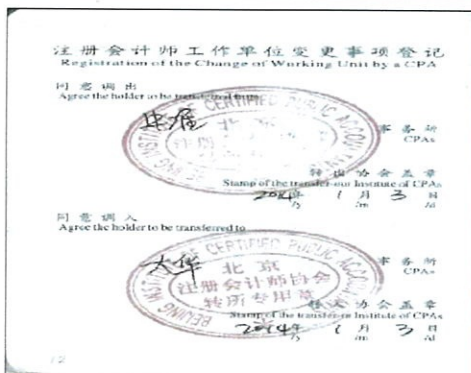 注册会计师工作单位变更事项登记
Registration of the Change of Working Unit by a CPA
同意调出
Agree the holder to be transferred from
事务所
CPAs
CERTIFIED PUBLIC ACCOUNTANTS
北京
转出协会盖章
Stamp of the transfer-out Institute of CPAs
2014年 1月 3日
/y /m /d
同意调入
Agree the holder to be transferred to
大华
事务所
CPAs
BEIJING INSTITUTE OF CERTIFIED PUBLIC ACCOUNTANTS
北京
注册会计师协会
转所专用章
协会盖章
Stamp of the transfer-in Institute of CPAs
2014年 1月 3日
/y /m /d
12